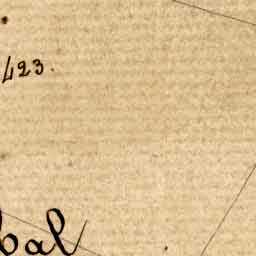 423.
bal